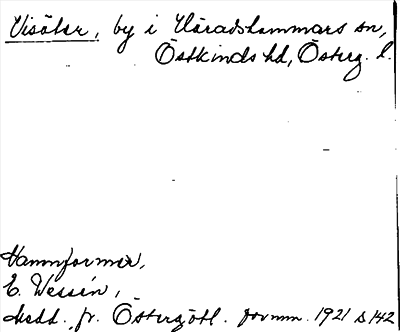 Visätter, by i Häradshammars sn,
Östkinds hd, Österg. l.
Namnformer,
E. Wessén,
Medd. fr. Östergötl. fornm. 1921 s 142